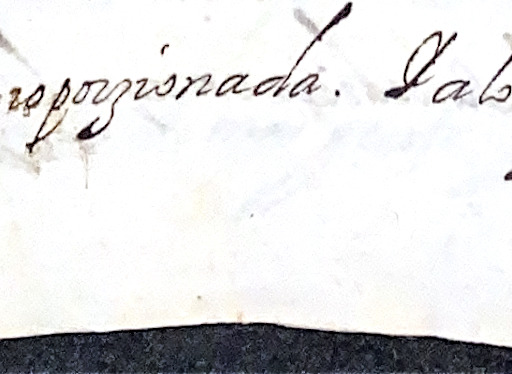 roporzionada. Valo